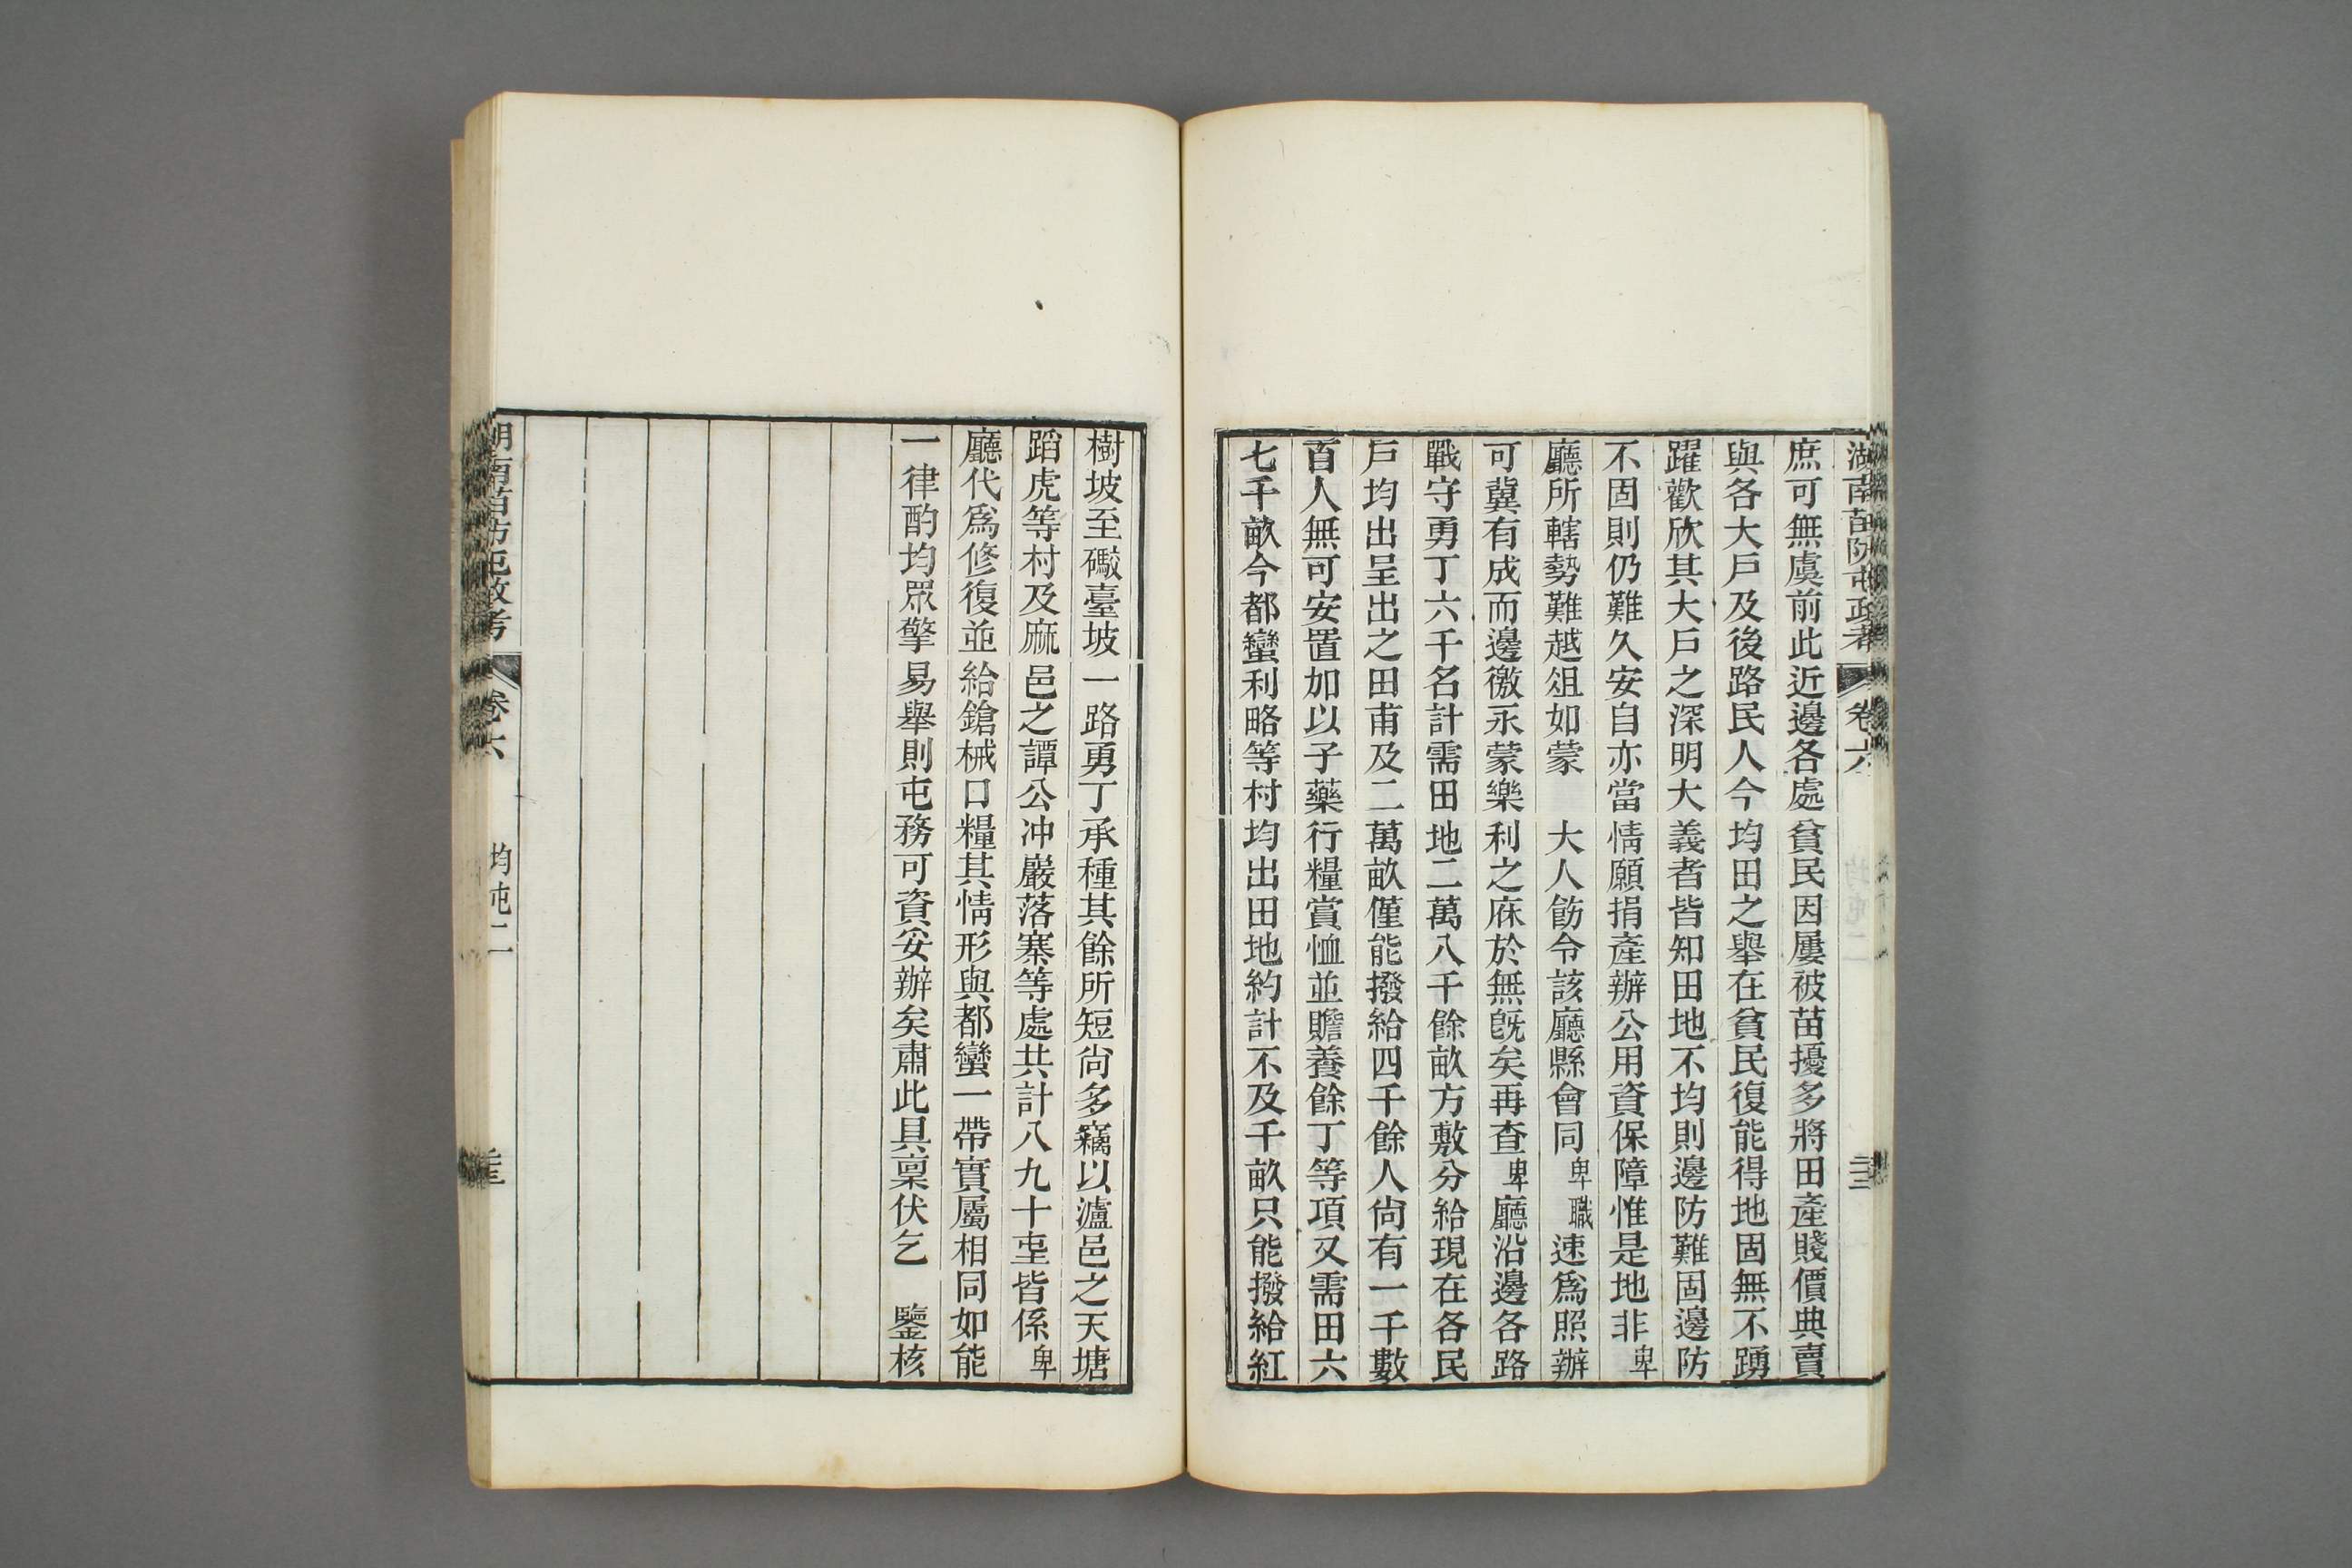 湖南苗防屯政考 卷六
庶可無虞前此近邊各處貧民因屢被苗擾多將田產賤價典賣
與各大戶及後路民人今均田之舉在貧民復能得地固無不踴
躍歡欣其大戶之深明大義者皆知田地不均則邊防難固邊防
不固則仍難久安自亦當情願捐產辦公用資保障惟是地非卑
廳所轄勢難越俎如蒙 大人飭令該廳縣會同卑職速爲照辦
可冀有成而邊徼永蒙樂利之庥於無旣矣再查卑廳沿邊各路
戰守勇丁六千名計需田地二萬八千餘畝方敷分給現在各民
戶均出呈出之田甫及二萬畝僅能撥給四千餘人尙有一千數
百人無可安置加以子藥行糧賞恤並贍養餘丁等項又需田六
七千畝今都蠻利略等村均出田地約計不及千畝只能撥給紅
樹坡至礮臺坡一路勇丁承種其餘所短尙多竊以瀘邑之天塘
蹈虎等村及麻邑之譚公冲巖落寨等處共計八九十㘴皆係卑
廳代爲修復並給鎗械口糧其情形與都蠻一帶實屬相同如能
一律酌均眾擎易舉則屯務可資妥辦矣肅此具稟伏乞 鑒核
湖南苗防屯政考 卷六 均屯二